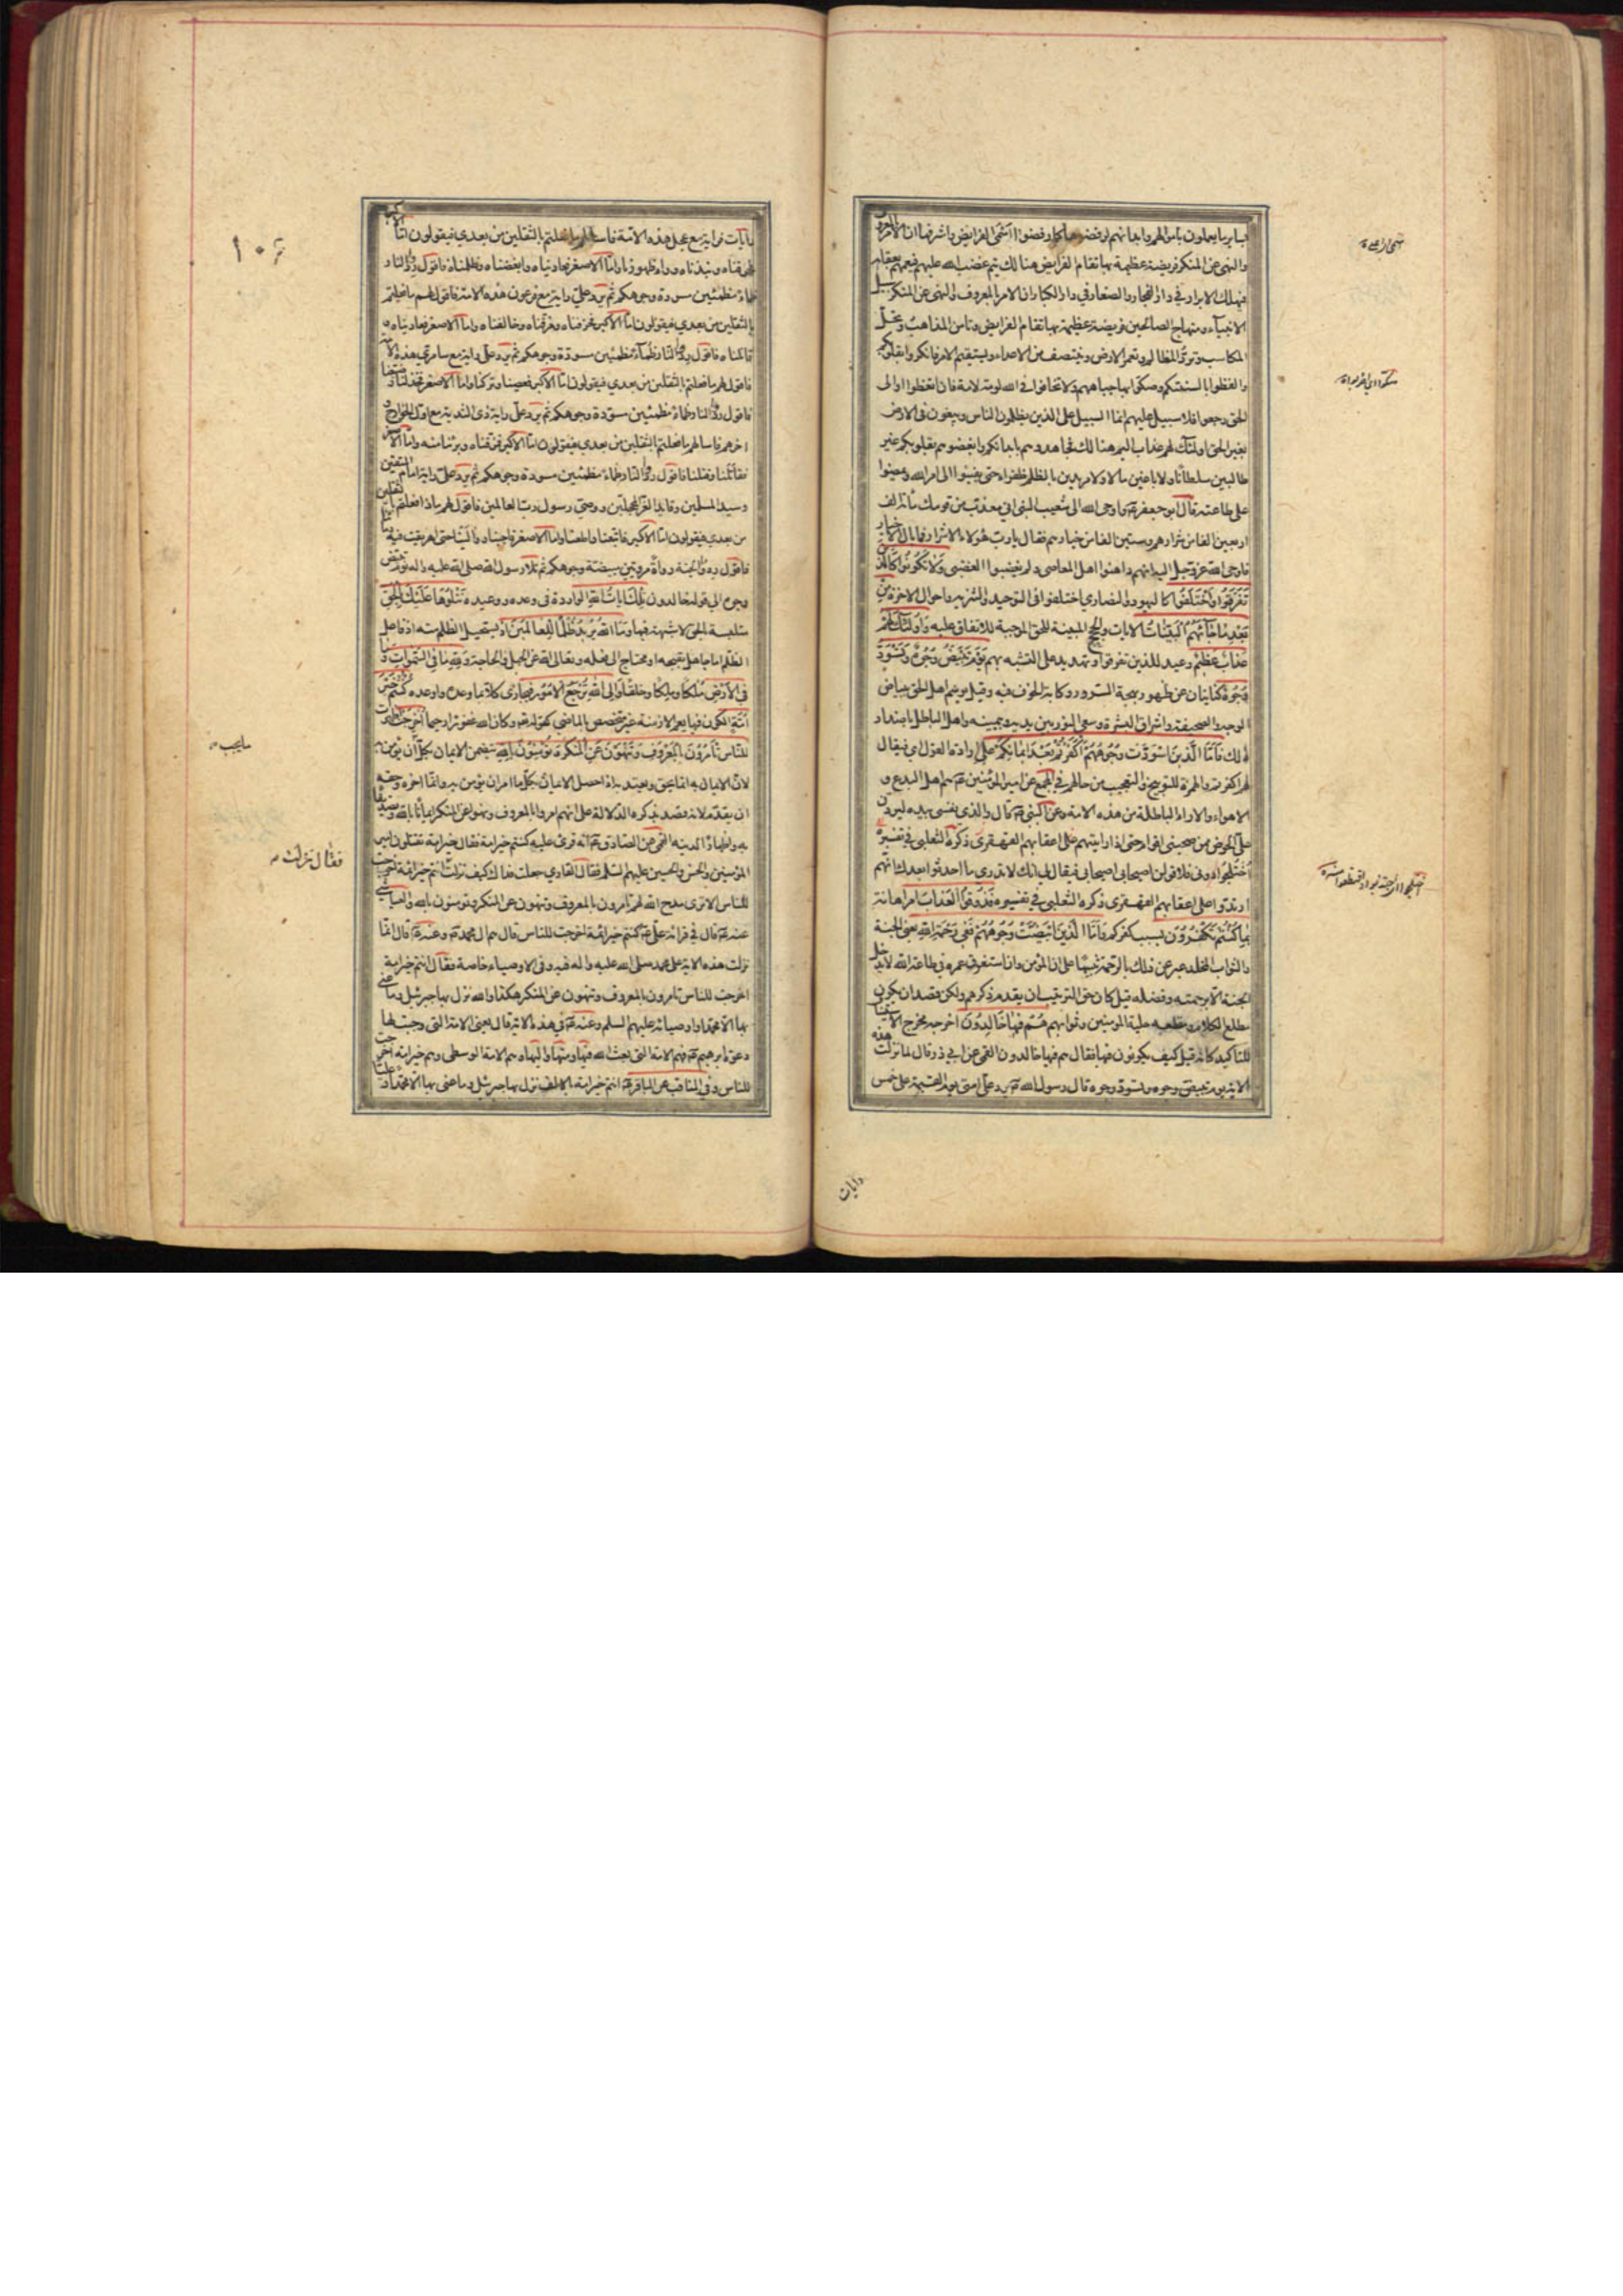 والنهي عن المنكر فريضة عظيمة بها تقام الفرايض هنا لك يتم غضب الله عليهم فيعمهم بعقابه
فيهلك الابرار في دار الفجار والصغار في دار الكبار ان الامر بالمعروف والنهي عن المنكر سبيل
الانبياء ومنهاج الصالحين فريضة عظيمة بها تقام الفرايض وتامن المذاهب وتحل
المكاسب وترد المظالم وتعمر الارض وينتصف من الاعداء ويستقيم الامر فانكروا بقلوبكم
والفظوا بالسنتكم وصكوا بها جباههم ولا تخافوا في الله لومة لائم فان اتعظوا والى
الحق رجعوا فلا سبيل عليهم انما السبيل على الذين يظلمون الناس ويبغون في الارض
بغير الحق اولئك لهم عذاب اليم هنا لك فجاهدوهم بابدانكم وابغضوهم بقلوبكم غير
طالبين سلطانا ولا باغين مالا ولا مريدين بالظلم ظفرا حتى يفيئوا الى امر الله ويمضوا
على طاعته قال ابو جعفر ع واوحى الله الى شعيب النبي اني معذب من قومك مائة الف
اربعين الفا من شرارهم وستين الفا من خيارهم فقال يا رب هؤلاء الاشرار فما بال الاخيار
فاوحى الله عز وجل اليه انهم داهنوا اهل المعاصي ولم يغضبوا لغضبي وَلَا تَكُونُوا كَالَّذِينَ
تَفَرَّقُوا وَاخْتَلَفُوا كاليهود والنصارى اختلفوا في التوحيد والتنزيه واحوال الاخرة مِنْ
بَعْدِ مَا جَاءَهُمُ الْبَيِّنَاتُ الايات والحجج المبينة للحق الموجبة للاتفاق عليه وَاُولٰئِكَ لَهُمْ
عَذَابٌ عَظِيمٌ وعيد للذين تفرقوا وتهديد على التشبه بهم يَوْمَ تَبْيَضُّ وُجُوهٌ وَتَسْوَدُّ
وُجُوهٌ كنايتان عن ظهور بهجة السرور وكابة الخوف فيه وقيل يوسم اهل الحق ببياض
الوجه والصحيفة واشراق البشرة وسعي النور بين يديه وبيمينه واهل الباطل باضداد
ذلك فَاَمَّا الَّذِينَ اسْوَدَّتْ وُجُوهُهُمْ اَكَفَرْتُمْ بَعْدَ اِيمَانِكُمْ على ارادة القول اي فيقال
لهم اكفرتم والهمزة للتوبيخ والتعجيب من حالهم في المجمع عن امير المؤمنين ع هم اهل البدع و
الاهواء والاراء الباطلة من هذه الامة وعن النبي ص قال والذي نفسي بيده ليردن
على الحوض ممن صحبني اقوام حتى اذا رايتهم على اعقابهم القهقرى ذكره الثعلبي في تفسيره
اختلجوا دوني فلاقولن اصحابي اصحابي فيقال لي انك لا تدري ما احدثوا بعدك انهم
ارتدوا على اعقابهم القهقرى ذكره الثعلبي في تفسيره فَذُوقُوا الْعَذَابَ امر اهانة
بِمَا كُنْتُمْ تَكْفُرُونَ بسبب كفركم وَاَمَّا الَّذِينَ ابْيَضَّتْ وُجُوهُهُمْ فَفِي رَحْمَةِ اللهِ يعني الجنة
والثواب المخلد عبر عن ذلك بالرحمة تنبيها على ان المؤمن وان استغرق عمره في طاعة الله لا يدخل
الجنة الا برحمته وفضله قيل كان حق الترتيب ان يقدم ذكرهم ولكن قصد ان يكون
مطلع الكلام ومقطعه حلية المؤمنين وثوابهم هُمْ فِيهَا خَالِدُونَ اخرجه مخرج الاستيناف
للتاكيد كانه قيل كيف يكونون فيها فقال هم فيها خالدون القمي عن ابي ذر قال لما نزلت هذه
الاية يوم تبيض وجوه وتسود وجوه قال رسول الله ص يرد علي امتي يوم القيمة على خمس
رايات
رايات فراية مع عجل هذه الامة فاسالهم ما فعلتم بالثقلين من بعدي فيقولون اما الاكبر
فحرفناه ونبذناه وراء ظهورنا واما الاصغر فعاديناه وابغضناه وظلمناه فاقول ردوا النار
ظماء مظمئين مسودة وجوهكم ثم يرد علي راية مع فرعون هذه الامة فاقول لهم ما فعلتم
بالثقلين من بعدي فيقولون اما الاكبر فحرفناه ومزقناه وخالفناه واما الاصغر فعاديناه و
قاتلناه فاقول ردوا النار ظماء مظمئين مسودة وجوهكم ثم يرد علي راية مع سامري هذه الامة
فاقول لهم ما فعلتم بالثقلين من بعدي فيقولون اما الاكبر فعصيناه وتركناه واما الاصغر فخذلناه وضيعناه
فاقول ردوا النار ظماء مظمئين مسودة وجوهكم ثم يرد علي راية ذي الثدية مع اول الخوارج و
اخرهم فاسالهم ما فعلتم بالثقلين من بعدي فيقولون اما الاكبر فمزقناه وبرئنا منه واما الاصغر
فقاتلنا وقتلنا فاقول ردوا النار ظماء مظمئين مسودة وجوهكم ثم يرد علي راية امام المتقين
وسيد المسلمين وقايد الغر المحجلين ووصي رسول رب العالمين فاقول لهم ماذا فعلتم بالثقلين
من بعدي فيقولون اما الاكبر فاتبعنا واطعنا واما الاصغر فاحببنا ووالينا حتى اهريقت فيه دماؤنا
فاقول ردوا الجنة رواء مرويين مبيضة وجوهكم ثم تلا رسول الله صلى الله عليه واله يوم تبيض
وجوه الى قوله خالدون تِلْكَ اٰيَاتُ اللهِ الواردة في وعده ووعيده نَتْلُوهَا عَلَيْكَ بِالْحَقِّ
متلبسة بالحق لا شبهة فيها وَمَا اللهُ يُرِيدُ ظُلْمًا لِلْعَالَمِينَ اذ يستحيل الظلم منه اذ فاعل
الظلم اما جاهل بقبحه او محتاج الى فعله وتعالى الله عن الجهل والحاجة وَلِلّٰهِ مَا فِي السَّمٰوَاتِ وَمَا
فِي الْاَرْضِ ملكا وملكا وخلقا وَاِلَى اللهِ تُرْجَعُ الْاُمُورُ فيجازي كلا بما وعده واوعده كُنْتُمْ خَيْرَ
اُمَّةٍ الكون فيها يعم الازمنة غير متخصص بالماضي كقوله تعالى وكان الله غفورا رحيما اُخْرِجَتْ اظهرت
لِلنَّاسِ تَأْمُرُونَ بِالْمَعْرُوفِ وَتَنْهَوْنَ عَنِ الْمُنْكَرِ وَتُؤْمِنُونَ بِاللهِ يتضمن الايمان بكل ان يؤمن به
لان الايمان به انما يحق ويعتد به اذا حصل الايمان بكل ما امر ان يؤمن به وانما اخره وحقه
ان يقدم لانه قصد بذكره الدلالة على انهم امروا بالمعروف ونهوا عن المنكر ايمانا بالله وتصديقا
به واظهارا لدينه القمي عن الصادق ع انه قرئ عليه كنتم خير امة فقال خير امة تقتلون امير
المؤمنين والحسن والحسين عليهم السلم فقال القاري جعلت فداك كيف نزلت انتم خير ائمة اخرجت
للناس الا ترى مدح الله لهم تامرون بالمعروف وتنهون عن المنكر وتؤمنون بالله والعياشي
عنه ع قال في قراءة علي ع كنتم خير ائمة اخرجت للناس قال هم ال محمد ص وعنه ع قال انما
نزلت هذه الاية على محمد صلى الله عليه واله فيه وفي الاوصياء خاصة فقال انتم خير ائمة
اخرجت للناس تامرون بالمعروف وتنهون عن المنكر هكذا والله نزل بها جبرئيل وما عنى
بها الا محمدا واوصيائه عليهم السلم وعنه ع في هذه الاية قال يعني الامة التي وجبت لها
دعوة ابرهيم ع فهم الامة التي بعث الله فيها ومنها واليها وهم الامة الوسطى وهم خير امة اخرجت
للناس وفي المناقب عن الباقر ع انتم خير امة بالالف نزل بها جبرئيل وما عنى بها الا محمدا وعليا
ما يجب
فقال نزلت